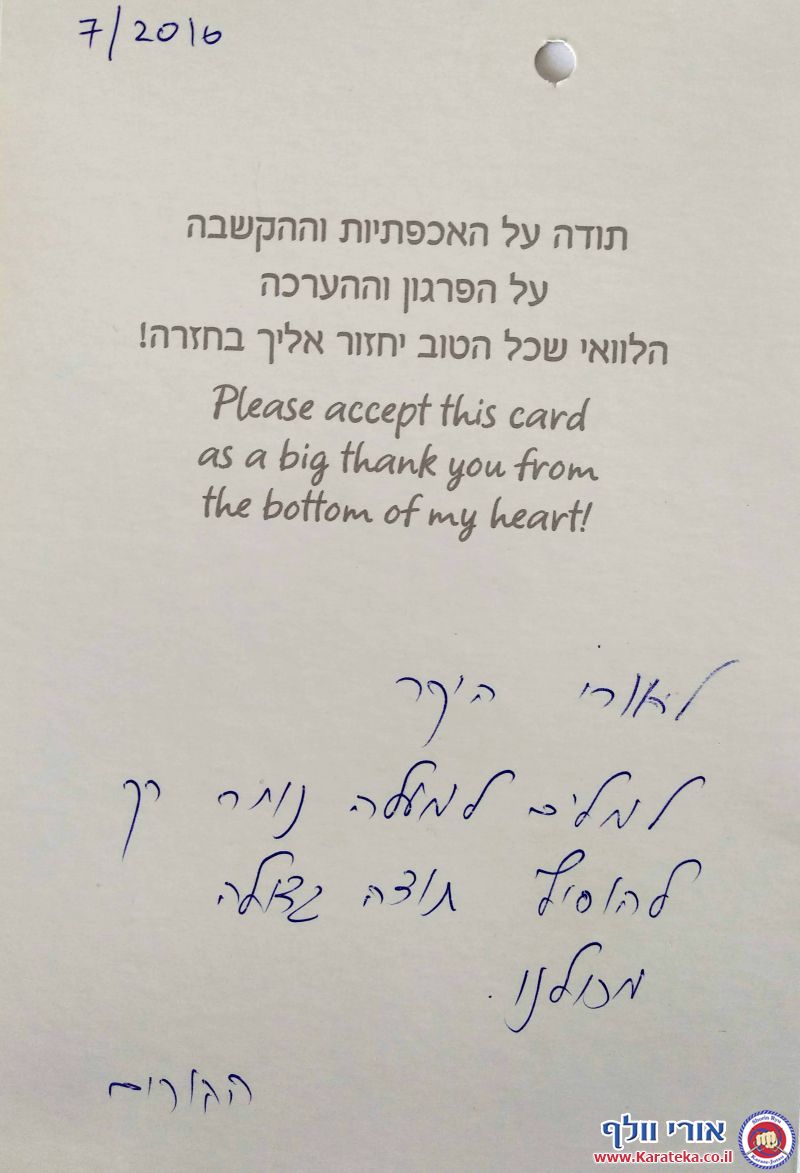 7/2016
תודה על האכפתיות וההקשבה
על הפרגון וההערכה
הלוואי שכל הטוב יחזור אליך בחזרה!
Please accept this card
as a big thank you from
the bottom of my heart!
לאורי היקר
למלים למעלה נותר רק
להוסיף תודה גדולה
מכולנו.
ההורים
אורי וולף
www.Karateka.co.il